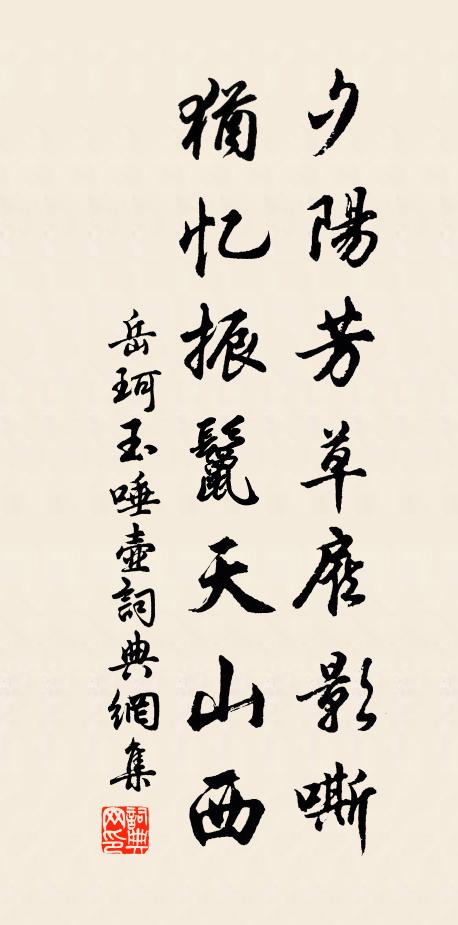 夕陽芳草顧影嘶
猶忆振鬣天山西
岳珂玉唾壺詞典網集
詞典网印